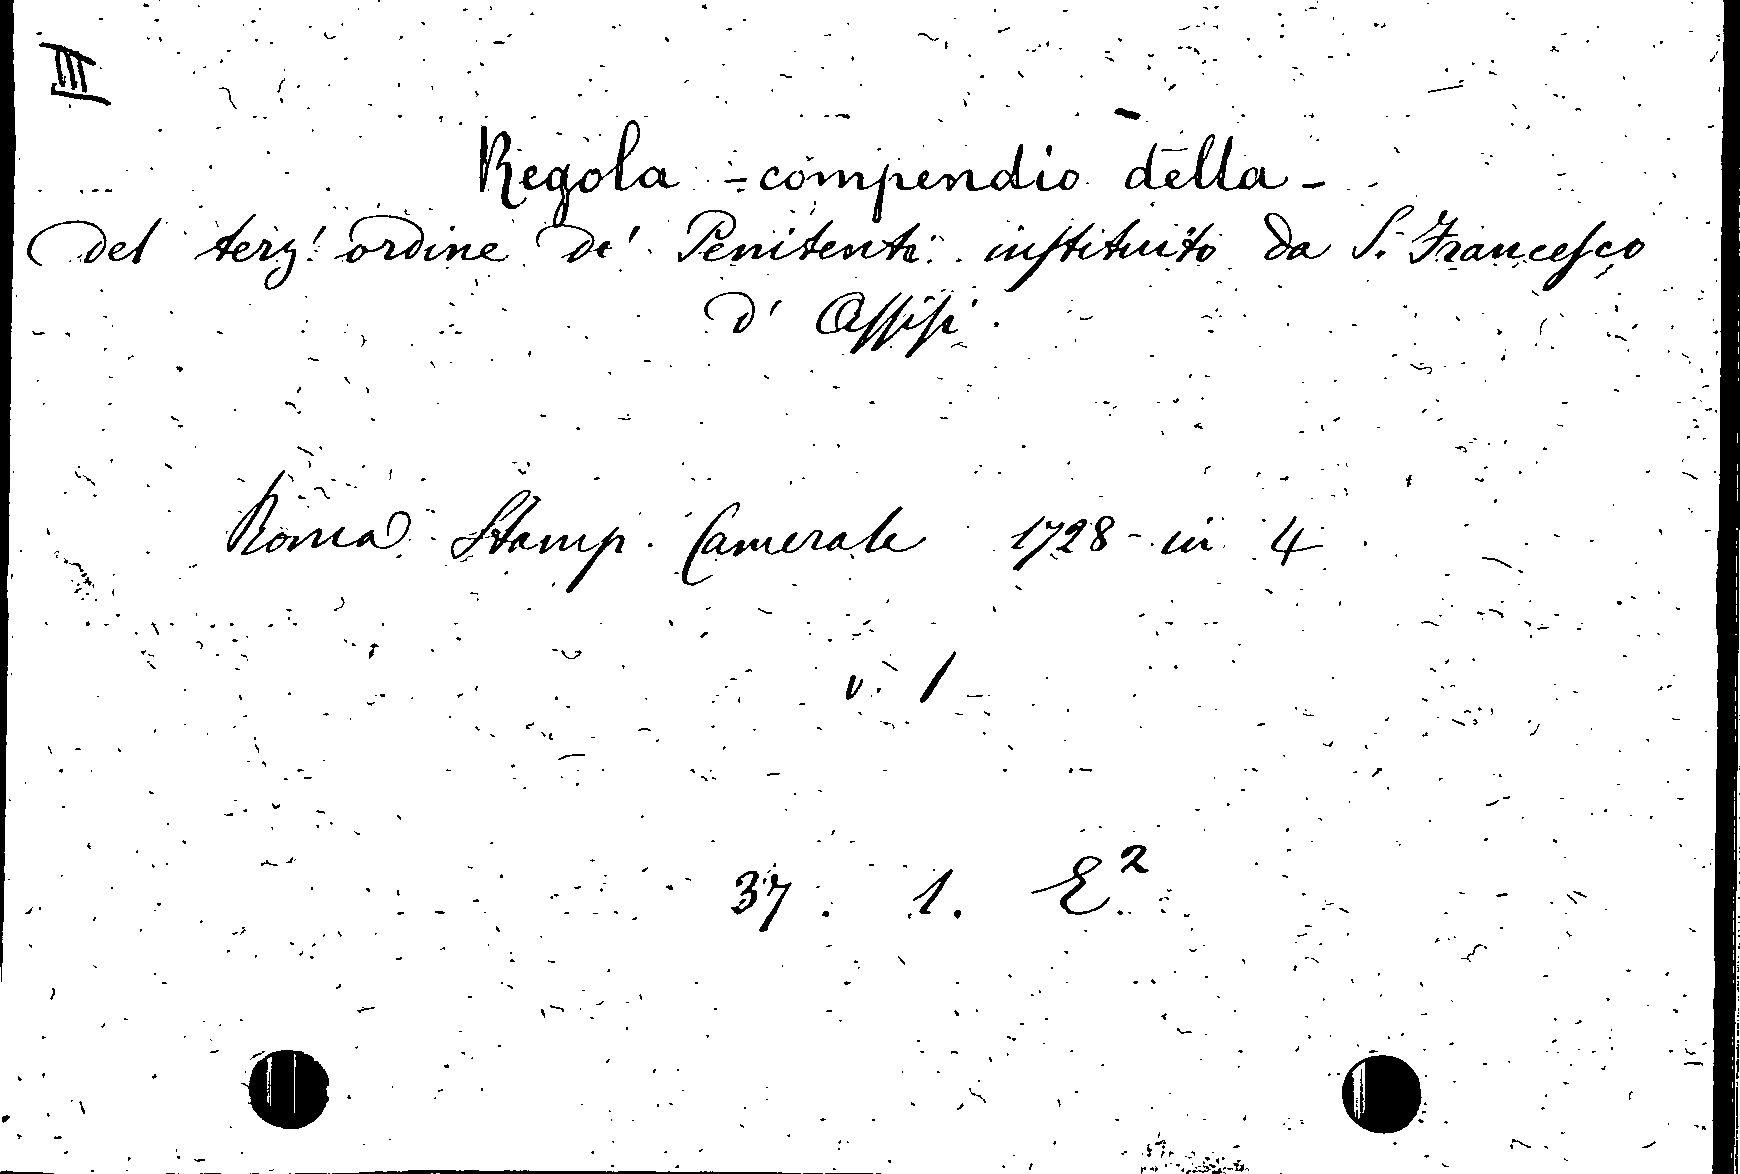 III
Regola - compendio della -
del terz' ordine de' Penitenti instituito da S. Francesco
d' Assisi.
Roma Stamp. Camerale 1728 - in 4
v. 1
37. 1. E²